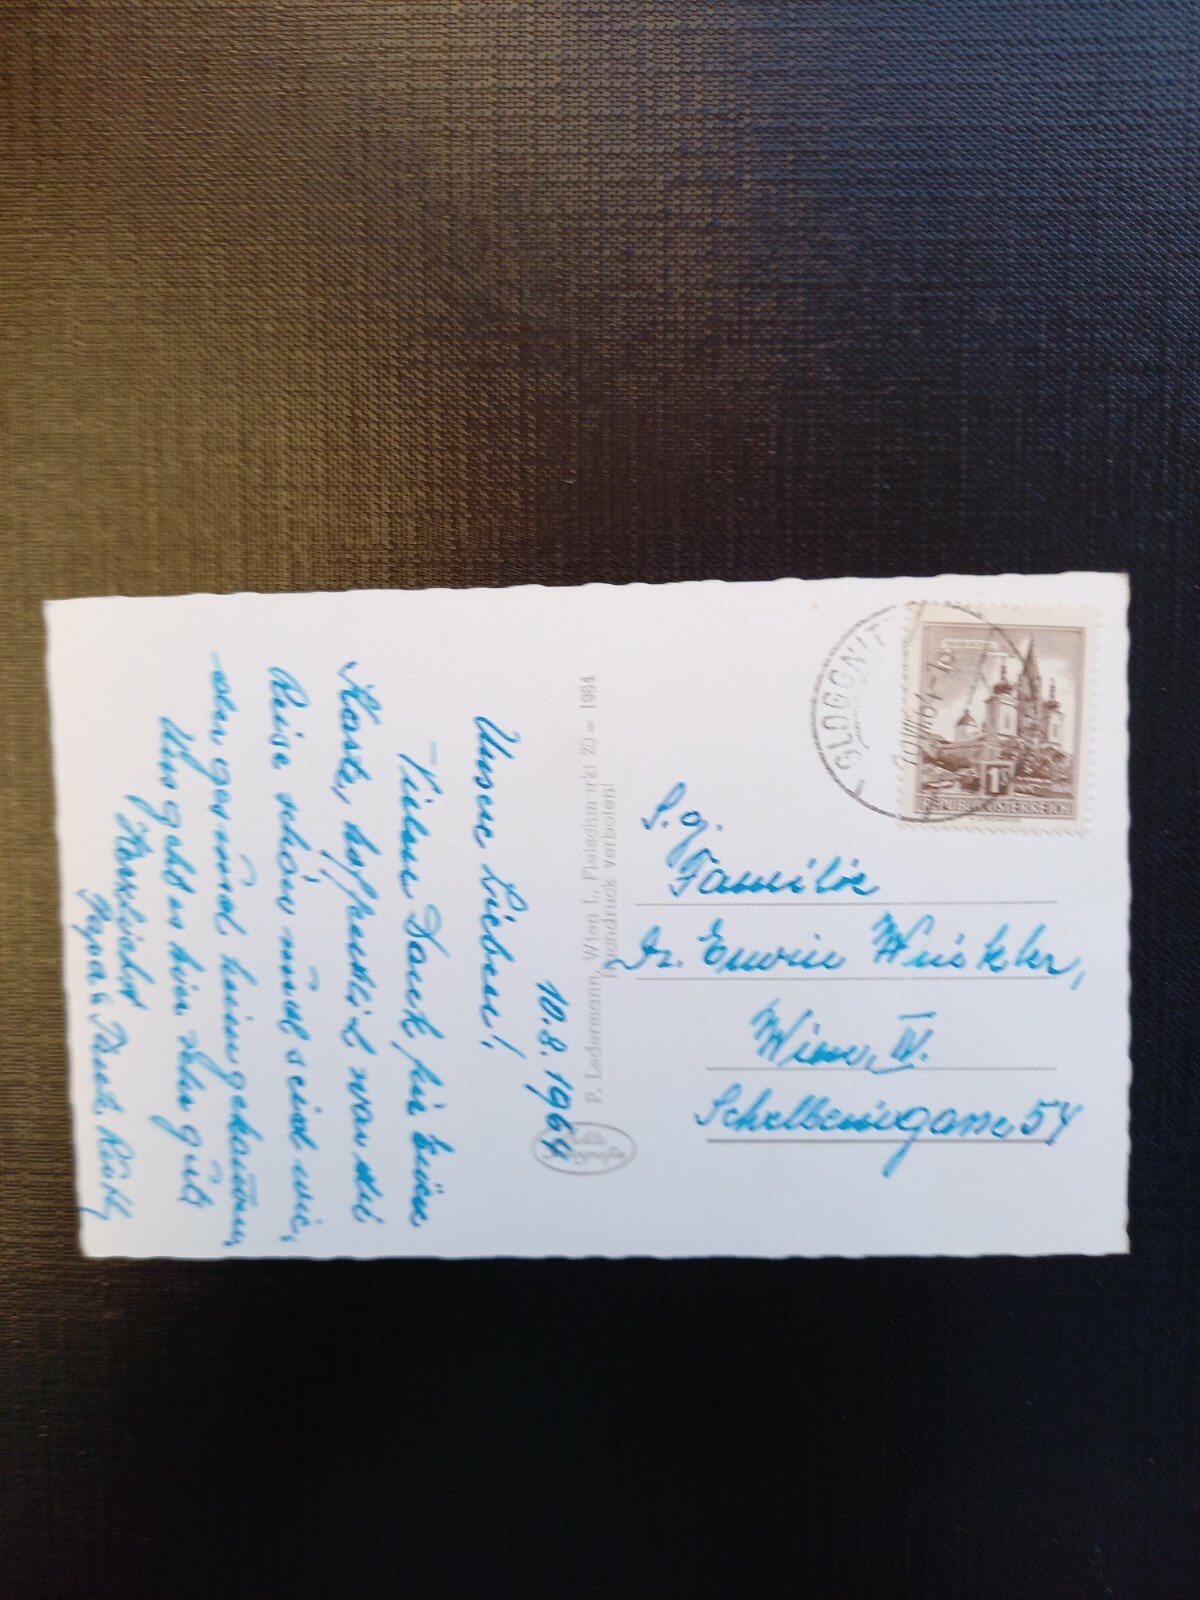 10.8.1964
Unsere Lieben!
Vielen Dank für Eure
Karte, hoffentlich war die
Reise schön und seid wie-
der gesund heimgekommen,
Uns geht es hier sehr gut
Herzlichst
Papa &
P. Ledermann, Wien I., Fleischmarkt 20 – 1964
Nachdruck verboten!
Echte
Fotografie
GLOGGNITZ
10.VIII.64
1S
REPUBLIK ÖSTERREICH
S.g.
Familie
Dr. Erwin Winkler,
Wien, IV.
54